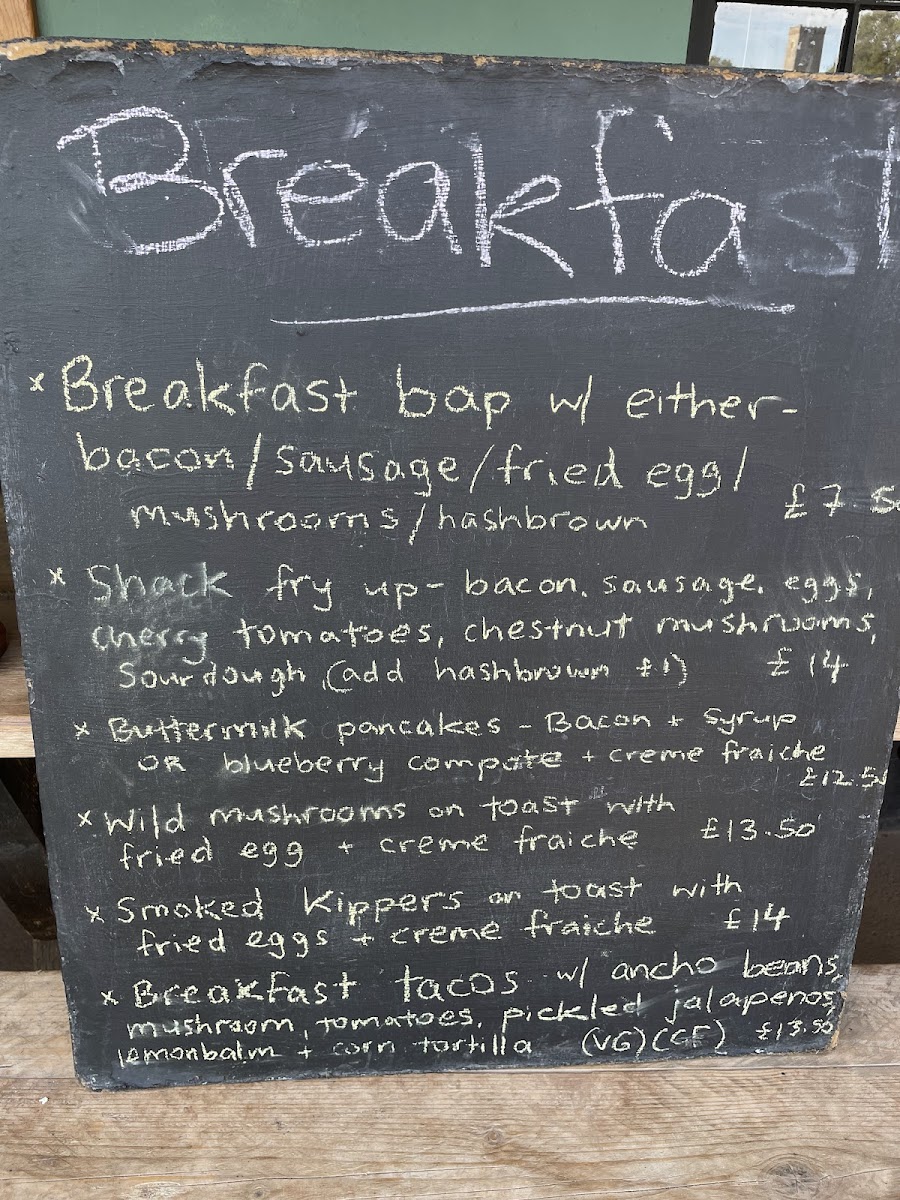 Breakfast
x Breakfast bap w/ either-
bacon/sausage/fried egg/
mushrooms/hashbrown £7.50
x Shack fry up- bacon, sausage, eggs,
cherry tomatoes, chestnut mushrooms,
Sourdough, (add hashbrown £1) £14
x Buttermilk pancakes - Bacon + Syrup
OR blueberry compote + creme fraiche
£12.50
x Wild mushrooms on toast with
fried egg + creme fraiche £13.50
x Smoked kippers on toast with
fried eggs + creme fraiche £14
x Breakfast tacos w/ ancho beans,
mushroom, tomatoes, pickled jalapenos,
lemonbalm + corn tortilla (VG) (GF) £13.50